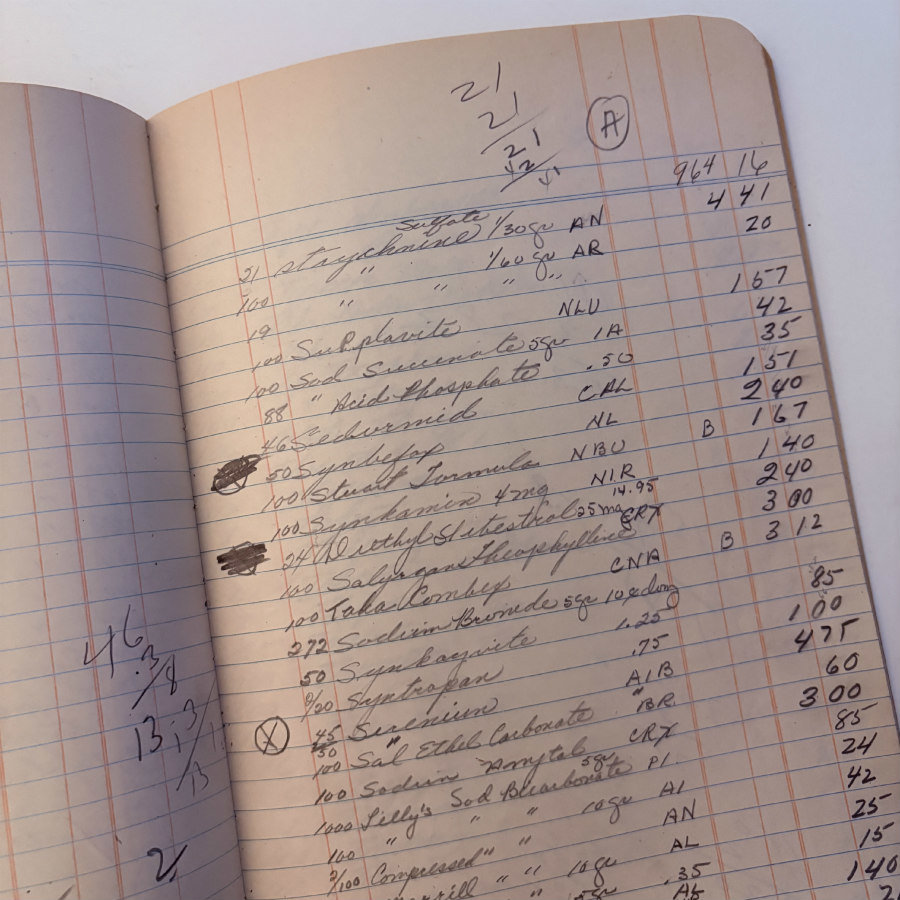 21
21
21
A
964 16
21 Strychnine Sulfate 1/30 gr AN 4 41
100 " 1/60 gr AR 20
19 " " " "
100 NLU 1 57
100 Sod Succinate 5gr 1A 42
88 " Acid Phosphate .50 35
46 Sedormid CAL 1 51
50 NL 2 40
100 Stuart Formula NBU B 1 67
100 Synkamin 4 mg NIR 1 40
24 Diethyl Stilbestrol 25 mg 14.95 2 40
100 Salyrgan Theophylline CRX 3 00
100 Taka Combex CNA B 3 12
272 Sodium Bromide 5gr
50 Synkayvite 1.25 85
Syntropan .75 1 00
X 45 AIB 4 75
50 "
100 Sal Ethel Carbonate BR 60
100 Sodium Amytal CRX 3 00
1000 Lilly's Sod Bicarbonate 5gr PI. 85
100 " " " 10 gr AI 24
2/100 Compressed " " AN 42
" " 10 gr AL 25
" 5gr .35 15
1 40
46
13
2